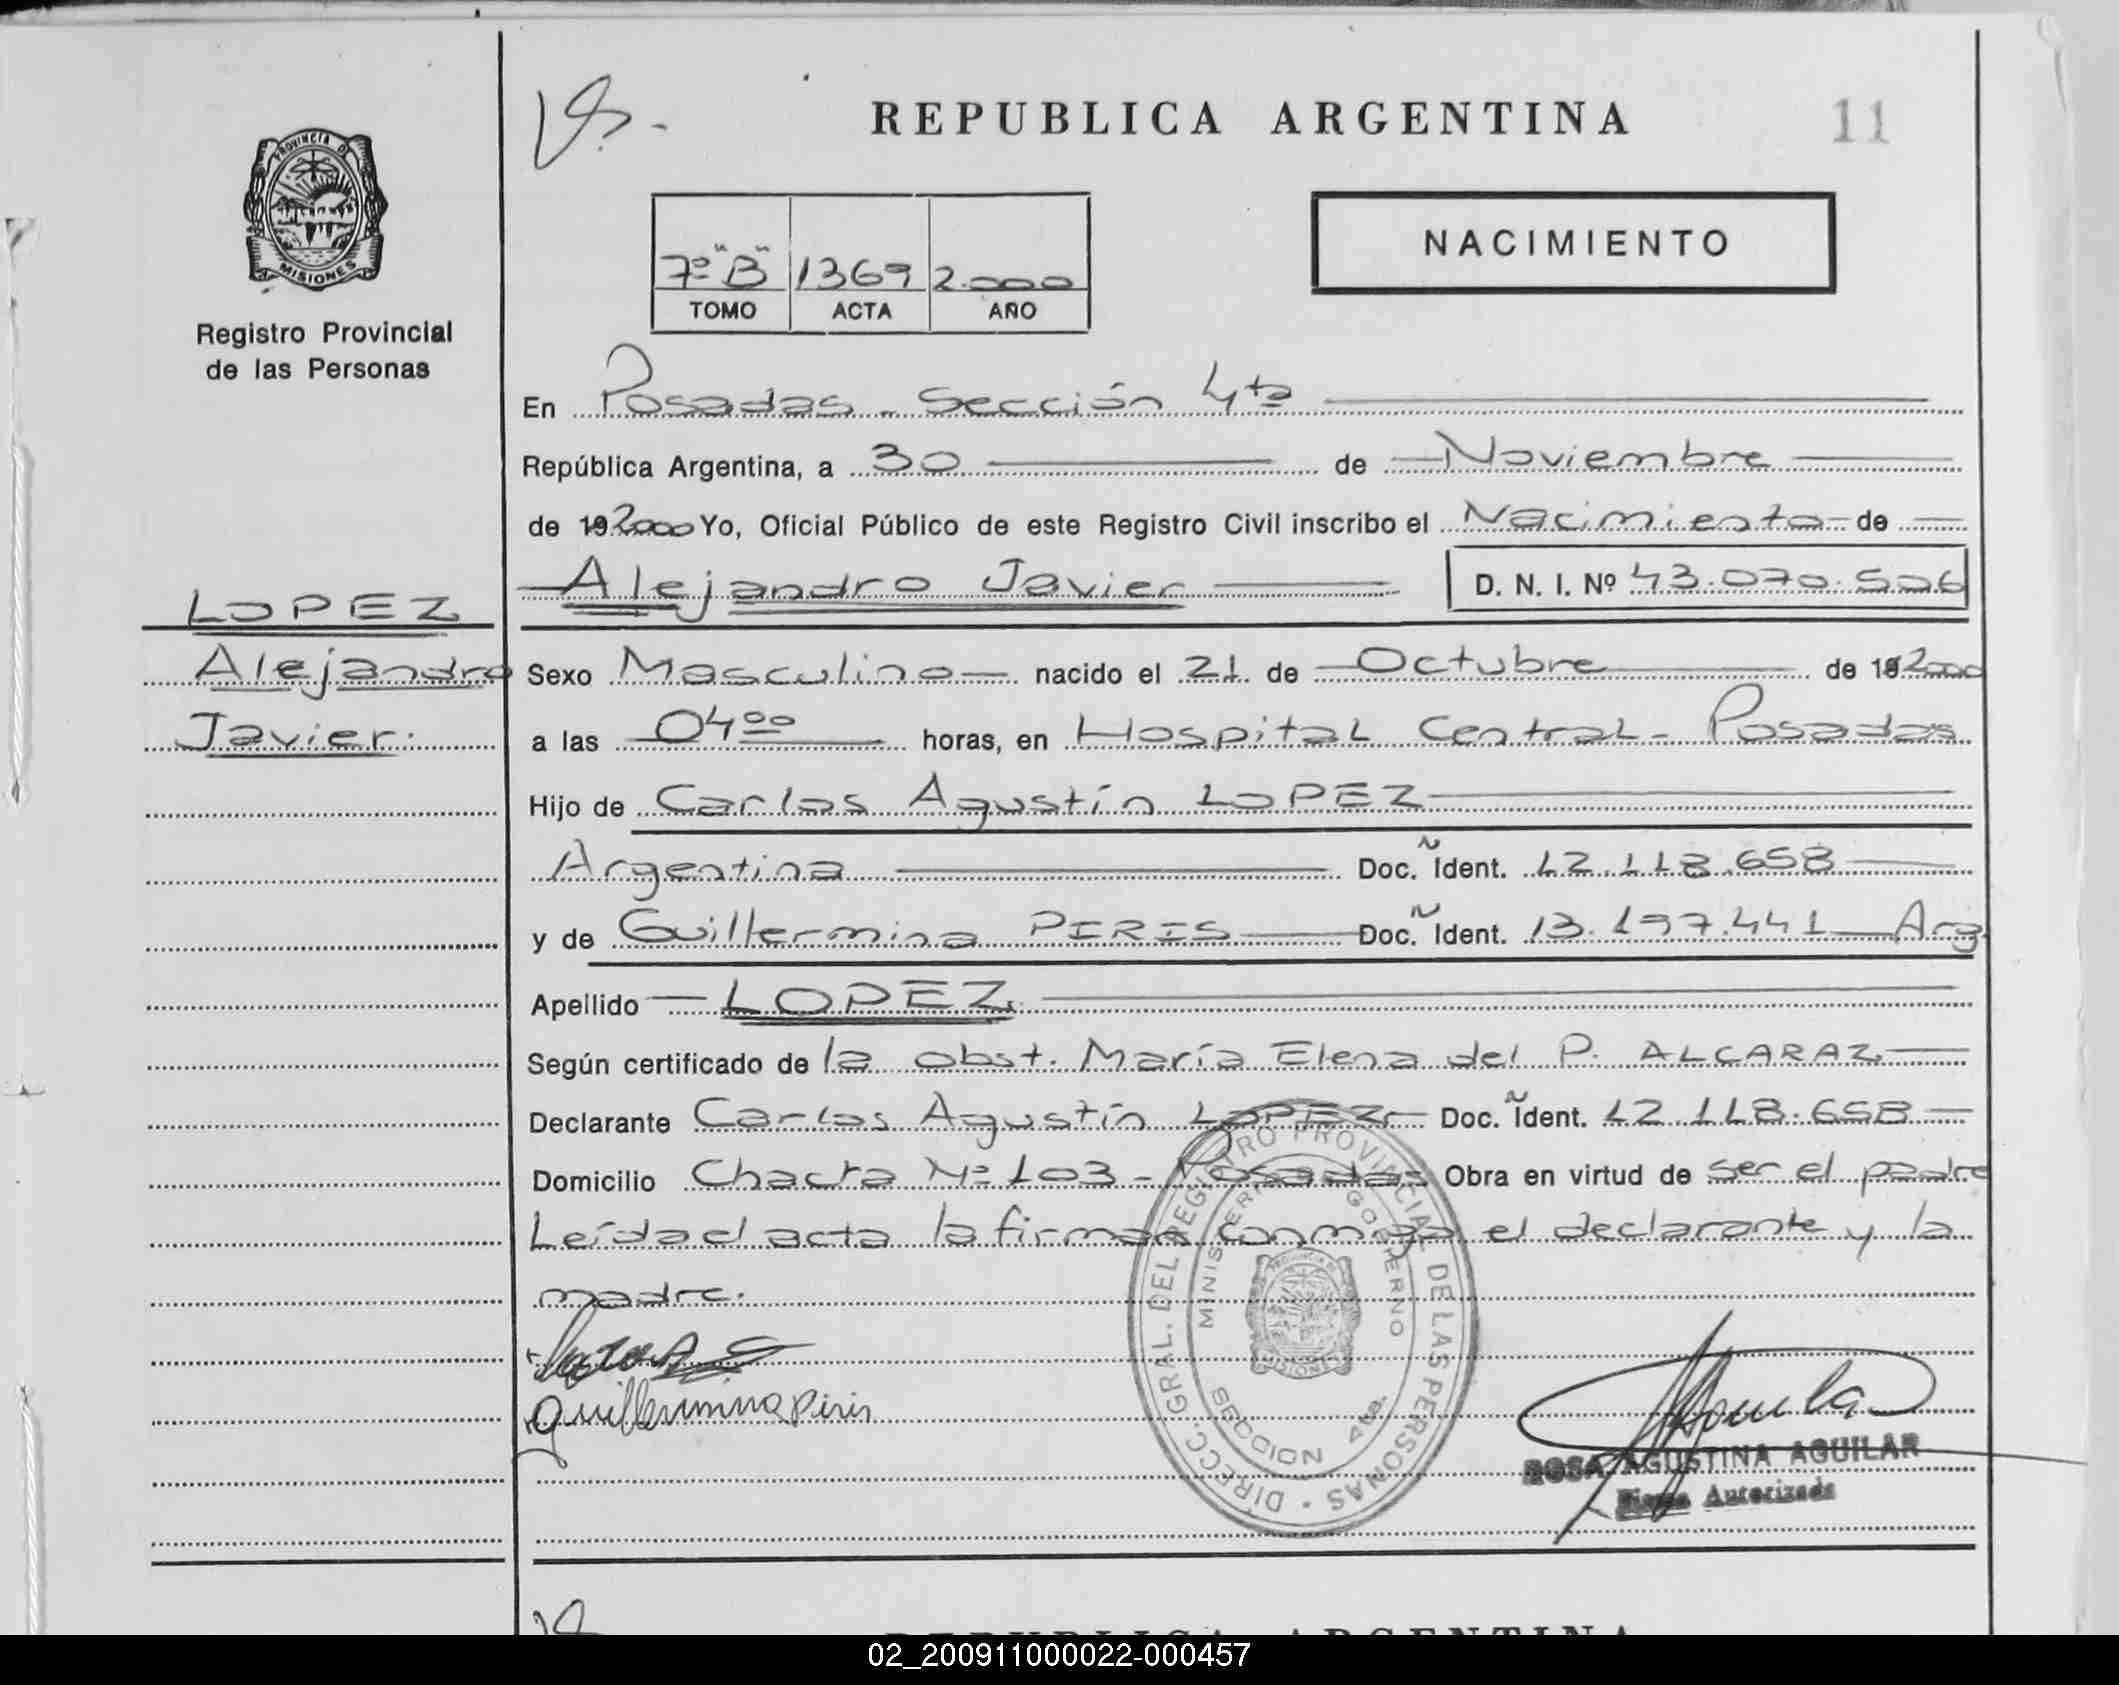 REPUBLICA ARGENTINA
11
PROVINCIA DE
MISIONES
Registro Provincial
de las Personas
7º "B" 1369 2.000
TOMO ACTA AÑO
NACIMIENTO
En Posadas - Sección 4ta
República Argentina, a 30 de Noviembre
de 192000 Yo, Oficial Público de este Registro Civil inscribo el Nacimiento de
Alejandro Javier D. N. I. Nº 43.070.506
LOPEZ
Alejandro
Javier.
Sexo Masculino nacido el 21 de Octubre de 192000
a las 04⁰⁰ horas, en Hospital Central - Posadas
Hijo de Carlos Agustín LOPEZ
Argentina Doc. Ident. 12.118.658
y de Guillermina PIRIS Doc. Ident. 13.197.441 Arg.
Apellido LOPEZ
Según certificado de la obst. María Elena del P. ALCARAZ
Declarante Carlos Agustín LOPEZ Doc. Ident. 12.118.658
Domicilio Chacra Nº 103 - Posadas Obra en virtud de ser el padre
Leída el acta la firman conmigo el declarante y la
madre.
Guillermina Piris
DIRECC. GRAL. DEL REGISTRO PROVINCIAL DE LAS PERSONAS
MINISTERIO GOBIERNO
PROVINCIA DE
MISIONES
SECCION 4ta.
Aguilar
ROSA AGUSTINA AGUILAR
Firma Autorizada
REPUBLICA ARGENTINA
02_200911000022-000457